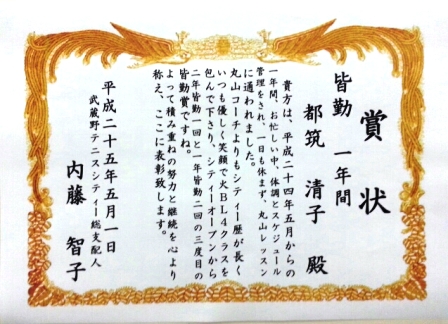 賞状
皆勤 一年間
都筑 清子 殿
貴方は、平成二十四年五月からの
一年間、お忙しい中、体調とスケジュール
管理をされ、一日も休まず、丸山レッスン
に通われました。
丸山コーチよりもシティー歴が長く
いつも優しく笑顔で火BL4クラスを
包んで下さり、シティーオープンから
二年皆勤一回と一年皆勤二回の三度目の
皆勤賞ですね。
よって積み重ねの努力と継続を心より
称え、ここに表彰致します。
平成二十五年五月一日
武蔵野テニスシティー総支配人
内藤 智子